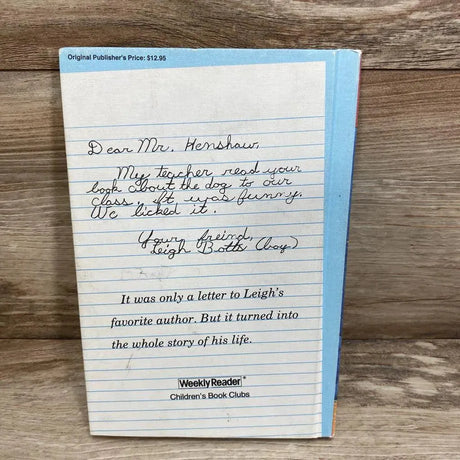 Original Publisher's Price: $12.95
Dear Mr. Henshaw,
My teacher read your
book about the dog to our
class. It was funny.
We licked it.
Your freind,
Leigh Botts (boy)
It was only a letter to Leigh's
favorite author. But it turned into
the whole story of his life.
Weekly Reader®
Children's Book Clubs